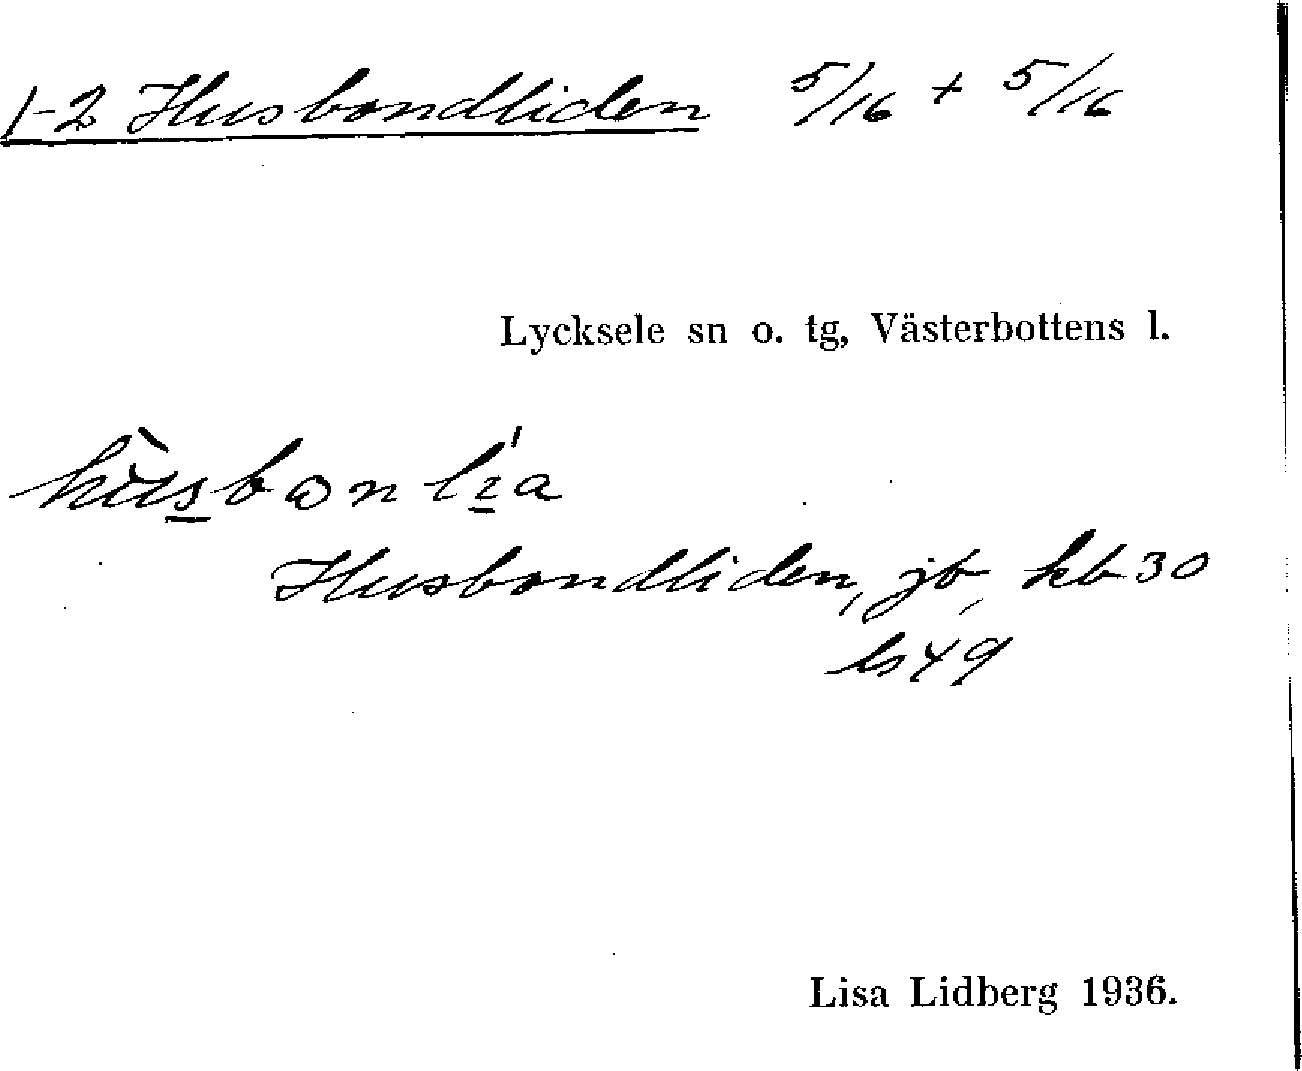 1-2 Husbondliden 5/16 + 5/16
Lycksele sn o. tg, Västerbottens l.
Husbondliden, jb, kb 30
ls 49
Lisa Lidberg 1936.